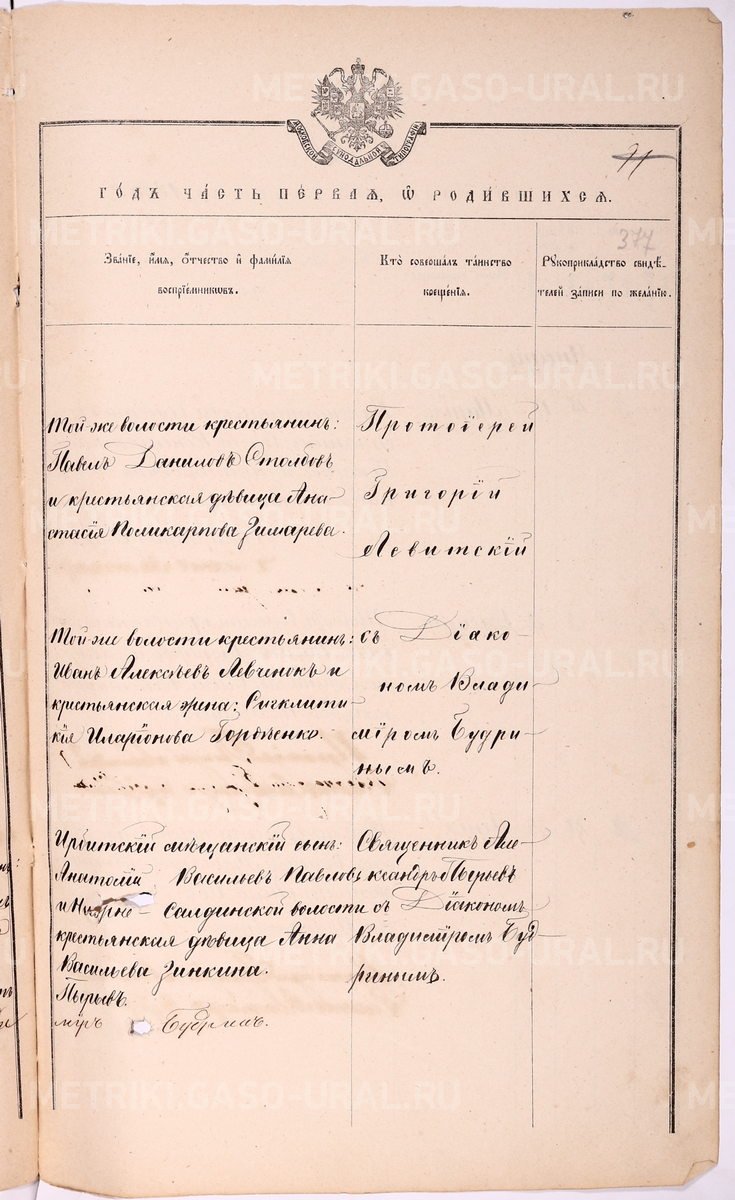 METRIKI.GASO-URAL.RU
МОСКОВСКОЙ СѴНОДАЛЬНОЙ ТИПОГРАФІИ
71
ГО́ДЪ ЧА́СТЬ ПЕ́РВАЯ, Ѡ҆ РОДИ́ВШИХСЯ.
377
Зва́нїе, и҆́мя, ѻ҆́тчество и҆ фами́лїя
воспрїе́мникѡвъ.
Кто̀ соверша́лъ та́инство
креще́нїя.
Рꙋкоприкла́дство свидѣ́-
телей за́писи по жела́нїю.
Той же волости крестьянинъ:
Павелъ Даниловъ Столбовъ
и крестьянская дѣвица Ана-
стасія Поликарпова Зимарева.
Протоіерей
Григорій
Левитскій
Той же волости крестьянинъ:
Иванъ Алексѣевъ Левченокъ и
крестьянская жена: Сигклити-
кія Иларіонова Гордѣенко.
съ Діако-
номъ Влади-
міромъ Будри-
нымъ.
Ирбитскій мѣщанскій сынъ:
Анатолій Васильевъ Павловъ
и Нижне-Салдинской волости
крестьянская дѣвица Анна
Васильева Зинкина.
Священникъ Але-
ксандръ Пырьевъ
съ Діакономъ
Владиміромъ Буд-
ринымъ.
Пырьевъ.